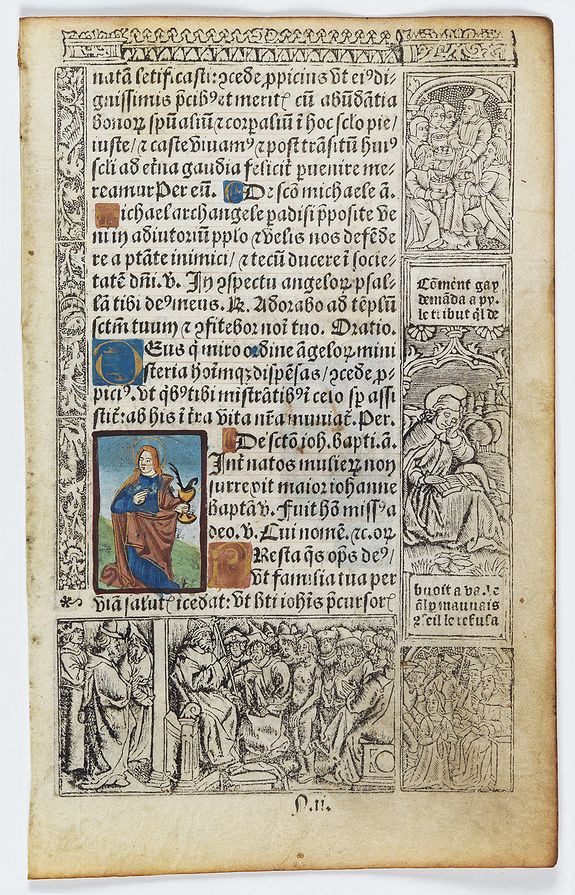 natā letif.casti:ↄcede ꝓpicius vt ei⁹di-
gnissimis p̄cib⁹ et merit cū abūdātia
bonoꝝ spūaliū ⁊ corpaliū ī hoc sclo pie/
iuste/ ⁊ caste viuam⁹ ⁊ post trāsitū hui⁹
scli ad et̄na gaudia felicit̄ puenire me-
reamur Per eū. De scō michaele ā.
Michael archangele padisi p̄posite ve
ni in adiutoriū pplo ⁊ velis nos defēde
re a ptāte inimici/ ⁊ tecū ducere ī socie-
tatē dn̄i. v. In ↄspectu angeloꝝ psal-
lā tibi de⁹ meus. ꝶ. Adorabo ad tēplū
sctm̄ tuum ⁊ ↄfitebor noī tuo. Oratio.
DEus q̄ miro ordine āgeloꝝ mini
steria hoīmqꝫ dispēsas/ ↄcede ꝓ-
pici⁹. vt q̄b⁹ tibi mistrātib⁹ ī celo sp̄ assi
stit̄: ab his ī t̄ra vita nr̄a muniat̄. Per.
De sctō ioh. bapti. ā.
Int̄ natos mulieꝝ non
surrexit maior iohanne
baptā v. Fuit hō miss⁹ a
deo. v. Cui nomē. ⁊c. oꝝ
PResta q̄s op̄s de⁹/
vt familia tua per
viā salut īcedat: vt bt̄i ioh̄is p̄cursor
Cōment gay
demāda a py.
le tribut q̄l de
buoit a
mauuais
ↄseil le refusa
n.ii.